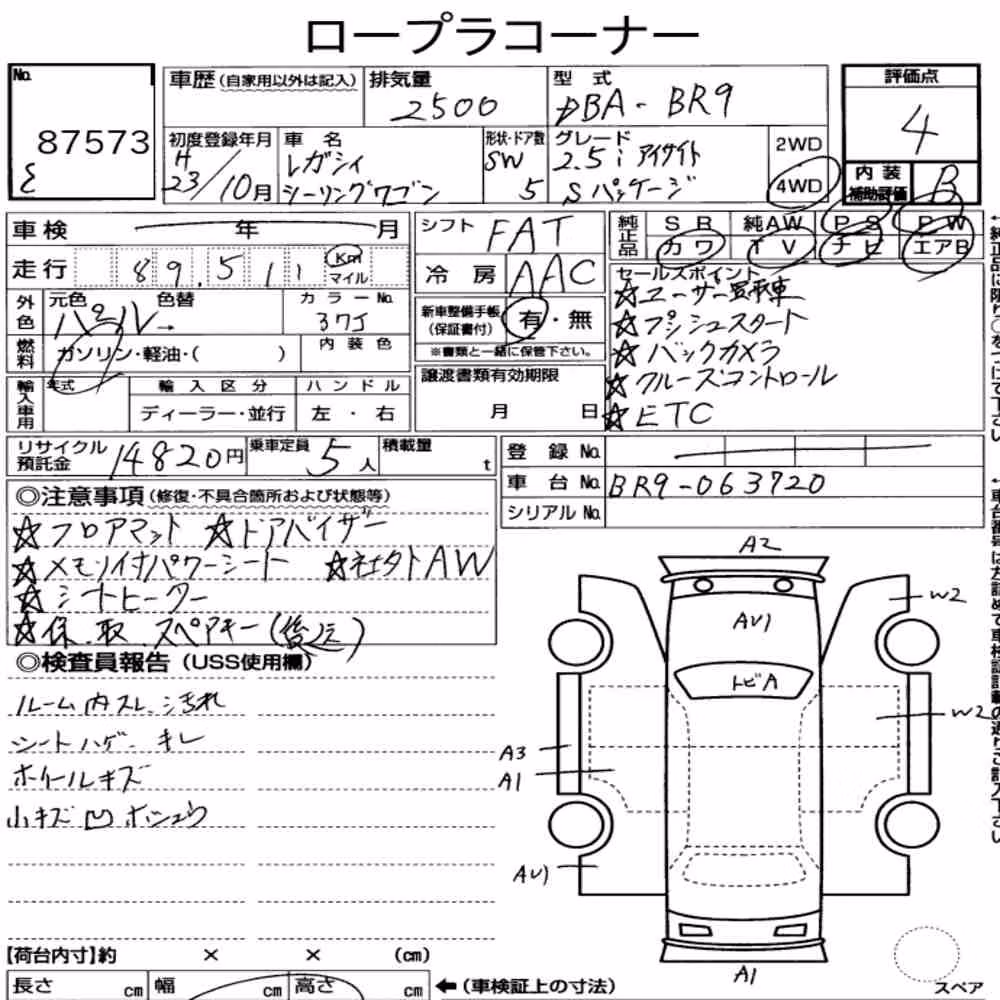 ロープラコーナー
No.
87573
車歴 (自家用以外は記入)
排気量
2500
型式
DBA - BR9
評価点
4
初度登録年月
H
23/10月
車名
レガシィ
ツーリングワゴン
形状・ドア数
SW
5
グレード
2.5i アイサイト
Sパッケージ
2WD
4WD
内装
補助評価
B
車検 年 月
シフト
FAT
純正品
SR 純AW PS PW
カワ TV ナビ エアB
走行 89,511 Km
マイル
冷房
AAC
セールスポイント
☆ユーザー買取車
☆プッシュスタート
☆バックカメラ
☆クルーズコントロール
☆ETC
外色
元色 色替
パール→
カラーNo.
37J
新車整備手帳
(保証書付)
有・無
※書類と一緒に保管下さい。
燃料
ガソリン・軽油・( )
内装色
輸入車用
年式
輸入区分
ハンドル
ディーラー・並行
左・右
譲渡書類有効期限
月 日
リサイクル
預託金
14820円
乗車定員
5人
積載量
t
登録No.
車台No.
BR9-063720
シリアルNo.
◎注意事項 (修復・不具合箇所および状態等)
☆フロアマット ☆ドアバイザー
☆メモリ付パワーシート ☆社外AW
☆シートヒーター
☆保、取、スペアキー(後送)
◎検査員報告 (USS使用欄)
ルーム内スレ、汚れ
シートハゲ、キレ
ホイールキズ
小キズ凹
A2
AU1
トビA
W2
W2
A3
A1
AU1
A1
スペア
【荷台内寸】約 × × (cm)
長さ cm 幅 cm 高さ cm
←(車検証上の寸法)